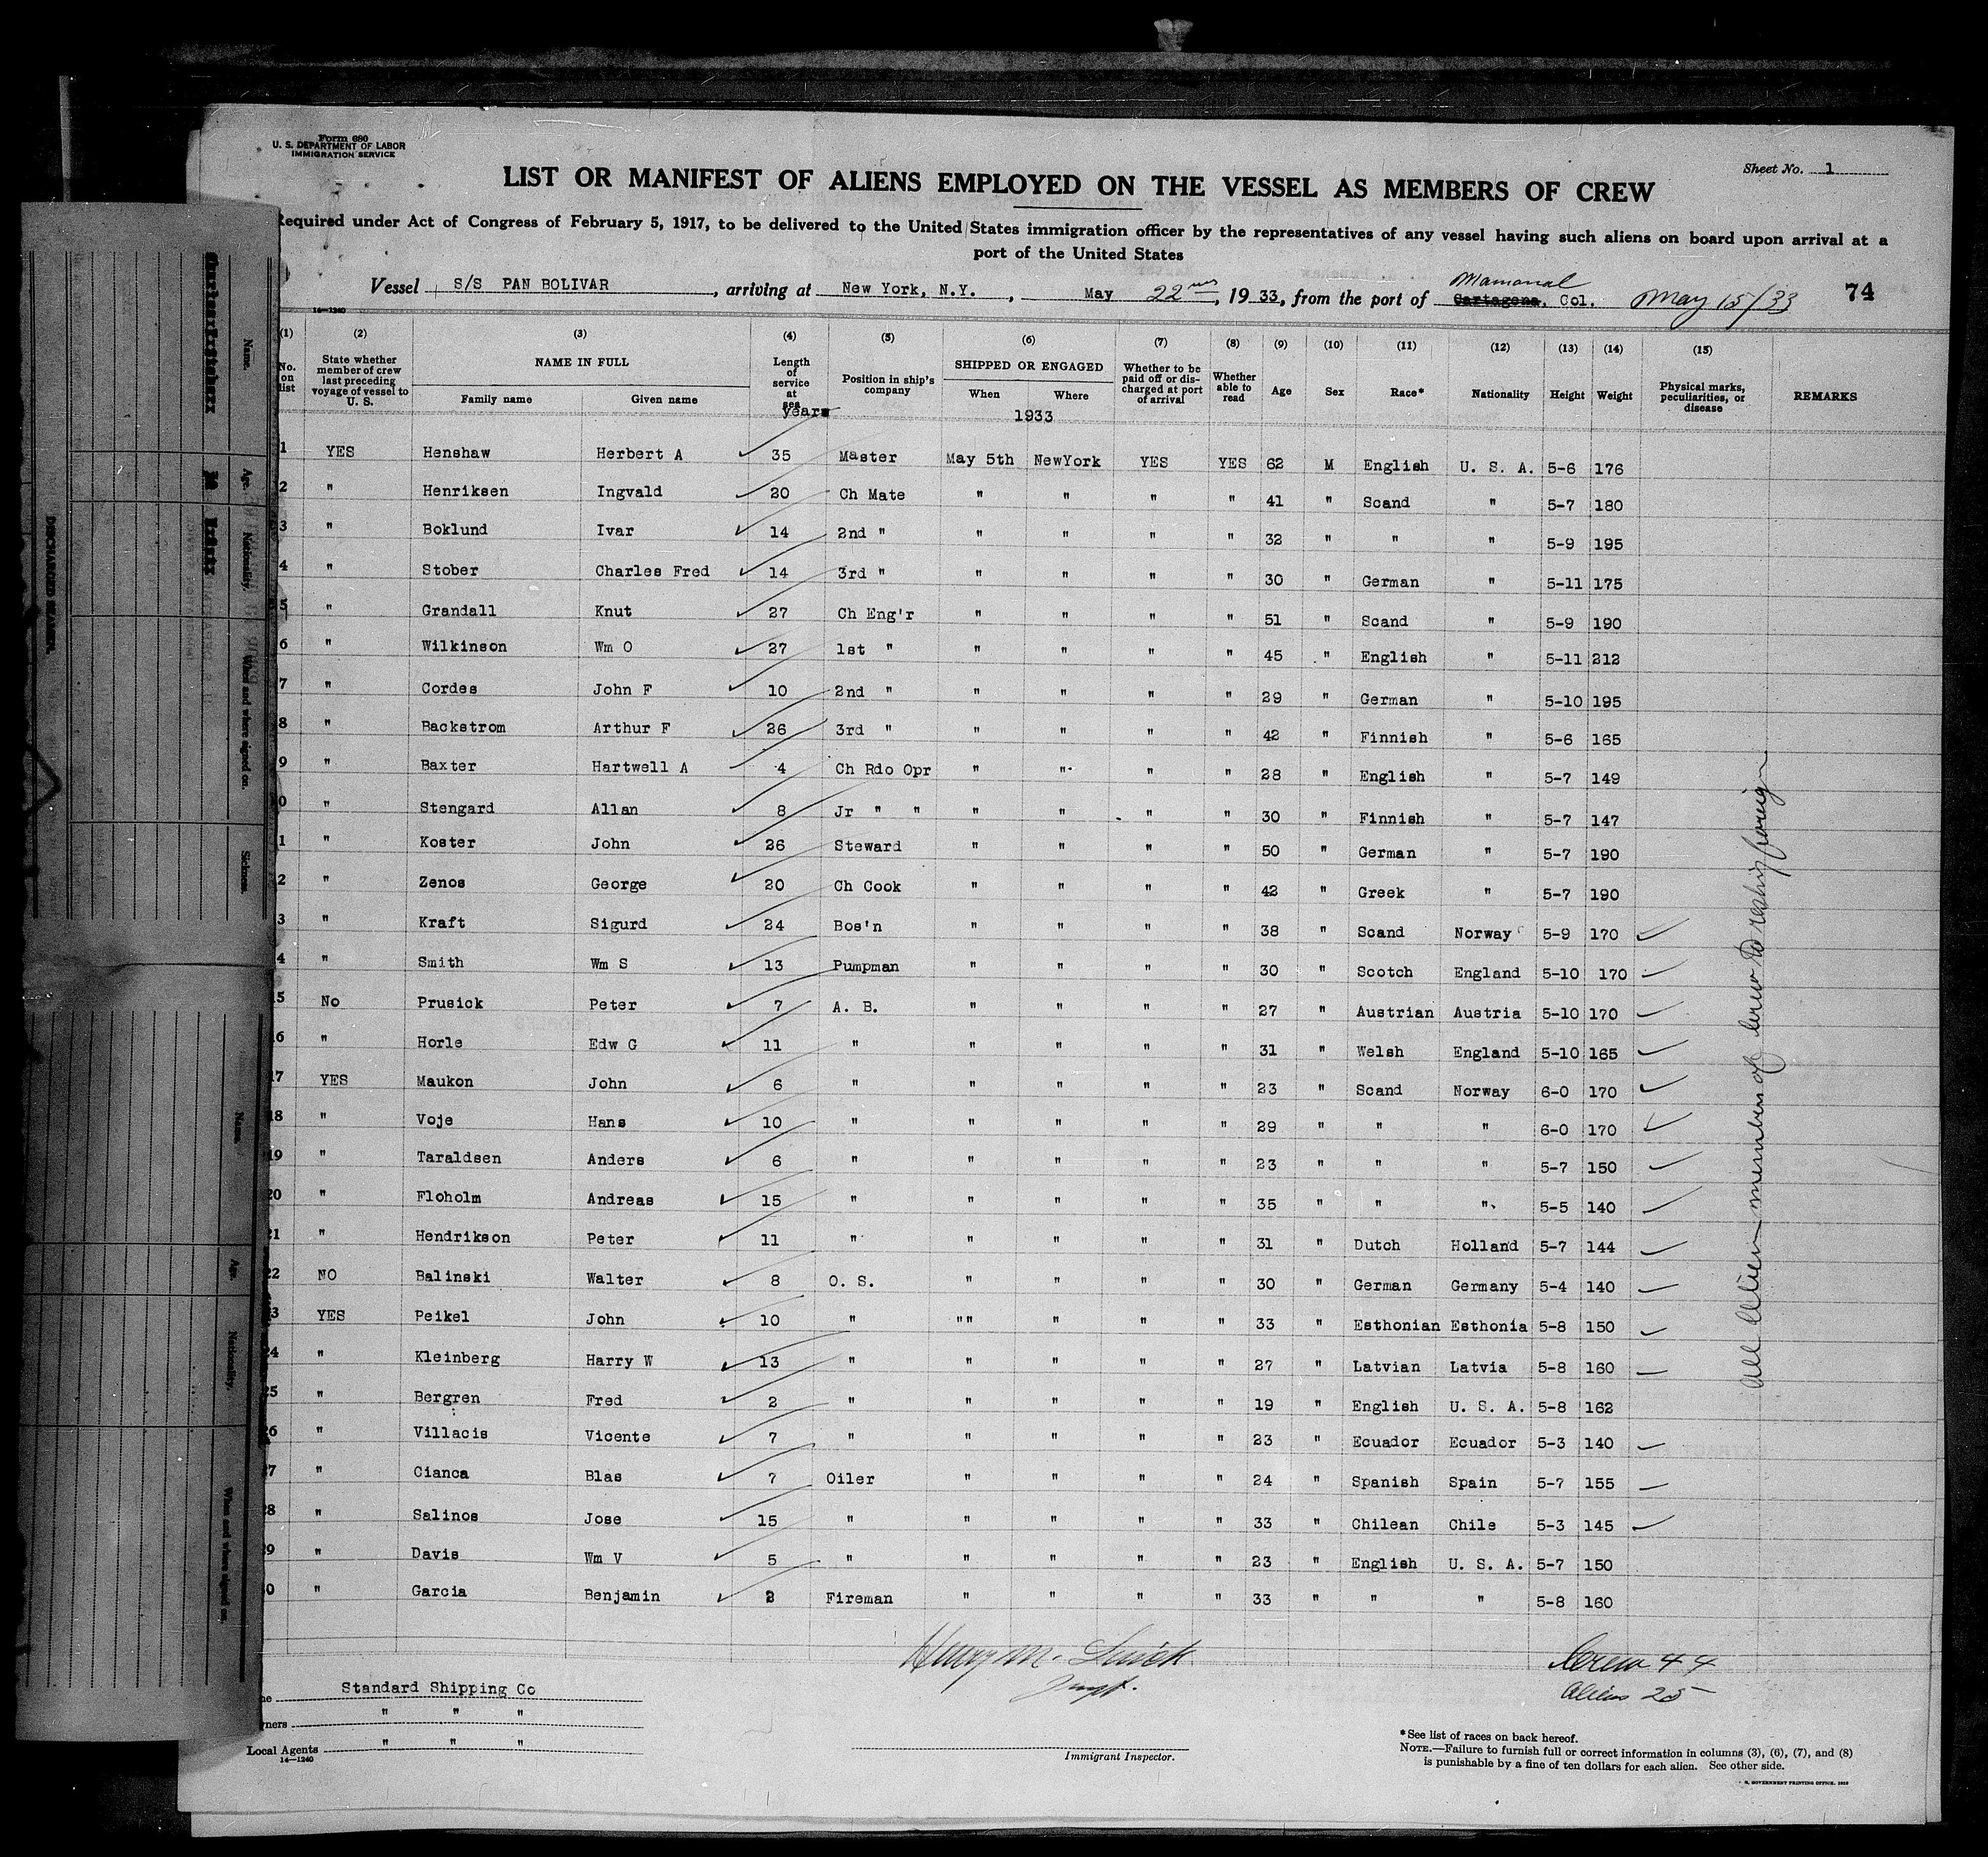 Form 680
U. S. DEPARTMENT OF LABOR
IMMIGRATION SERVICE
Sheet No. 1
LIST OR MANIFEST OF ALIENS EMPLOYED ON THE VESSEL AS MEMBERS OF CREW
Required under Act of Congress of February 5, 1917, to be delivered to the United States immigration officer by the representatives of any vessel having such aliens on board upon arrival at a
port of the United States
Vessel S/S PAN BOLIVAR, arriving at New York, N.Y., May 22nd, 1933, from the port of Mamonal Cartagena, Col. May 15/33 74
14—1240
(1) (2) (3) (4) (5) (6) (7) (8) (9) (10) (11) (12) (13) (14) (15)
No. on list State whether member of crew last preceding voyage of vessel to U. S. NAME IN FULL Family name Given name Length of service at sea Position in ship's company SHIPPED OR ENGAGED When Where Whether to be paid off or discharged at port of arrival Whether able to read Age Sex Race* Nationality Height Weight Physical marks, peculiarities, or disease REMARKS
years 1933
1 YES Henshaw Herbert A 35 Master May 5th NewYork YES YES 62 M English U. S. A. 5-6 176
2 " Henriksen Ingvald 20 Ch Mate " " " " 41 " Scand " 5-7 180
3 " Boklund Ivar 14 2nd " " " " " 32 " " " 5-9 195
4 " Stober Charles Fred 14 3rd " " " " " 30 " German " 5-11 175
5 " Grandall Knut 27 Ch Eng'r " " " " 51 " Scand " 5-9 190
6 " Wilkinson Wm O 27 1st " " " " " 45 " English " 5-11 212
7 " Cordes John F 10 2nd " " " " " 29 " German " 5-10 195
8 " Backstrom Arthur F 26 3rd " " " " " 42 " Finnish " 5-6 165
9 " Baxter Hartwell A 4 Ch Rdo Opr " " " " 28 " English " 5-7 149
0 " Stengard Allan 8 Jr " " " " " " 30 " Finnish " 5-7 147
1 " Koster John 26 Steward " " " " 50 " German " 5-7 190
2 " Zenos George 20 Ch Cook " " " " 42 " Greek " 5-7 190
3 " Kraft Sigurd 24 Bos'n " " " " 38 " Scand Norway 5-9 170
4 " Smith Wm S 13 Pumpman " " " " 30 " Scotch England 5-10 170
15 No Prusick Peter 7 A. B. " " " " 27 " Austrian Austria 5-10 170
16 " Horle Edw G 11 " " " " " 31 " Welsh England 5-10 165
17 YES Maukon John 6 " " " " " 23 " Scand Norway 6-0 170
18 " Voje Hans 10 " " " " " 29 " " " 6-0 170
19 " Taraldsen Anders 6 " " " " " 23 " " " 5-7 150
20 " Floholm Andreas 15 " " " " " 35 " " " 5-5 140
21 " Hendrikson Peter 11 " " " " " 31 " Dutch Holland 5-7 144
22 NO Balinski Walter 8 O. S. " " " " 30 " German Germany 5-4 140
3 YES Peikel John 10 " "" " " " 33 " Esthonian Esthonia 5-8 150
24 " Kleinberg Harry W 13 " " " " " 27 " Latvian Latvia 5-8 160
25 " Bergren Fred 2 " " " " " 19 " English U. S. A. 5-8 162
26 " Villacis Vicente 7 " " " " " 23 " Ecuador Ecuador 5-3 140
27 " Cianca Blas 7 Oiler " " " " 24 " Spanish Spain 5-7 155
28 " Salinos Jose 15 " " " " " 33 " Chilean Chile 5-3 145
29 " Davis Wm V 5 " " " " " 23 " English U. S. A. 5-7 150
0 " Garcia Benjamin 2 Fireman " " " " 33 " " " 5-8 160
All Alien members of crew to reship foreign
Henry M.
Inspt.
Crew 44
Aliens 25
Standard Shipping Co
" " "
Local Agents " " "
14—1240
Immigrant Inspector.
*See list of races on back hereof.
NOTE.—Failure to furnish full or correct information in columns (3), (6), (7), and (8)
is punishable by a fine of ten dollars for each alien. See other side.
GOVERNMENT PRINTING OFFICE
DISCHARGED SEAMEN.
Name. Age. Nationality. When and where signed on. Sickness.
Name. Age. Nationality. When and where signed on.